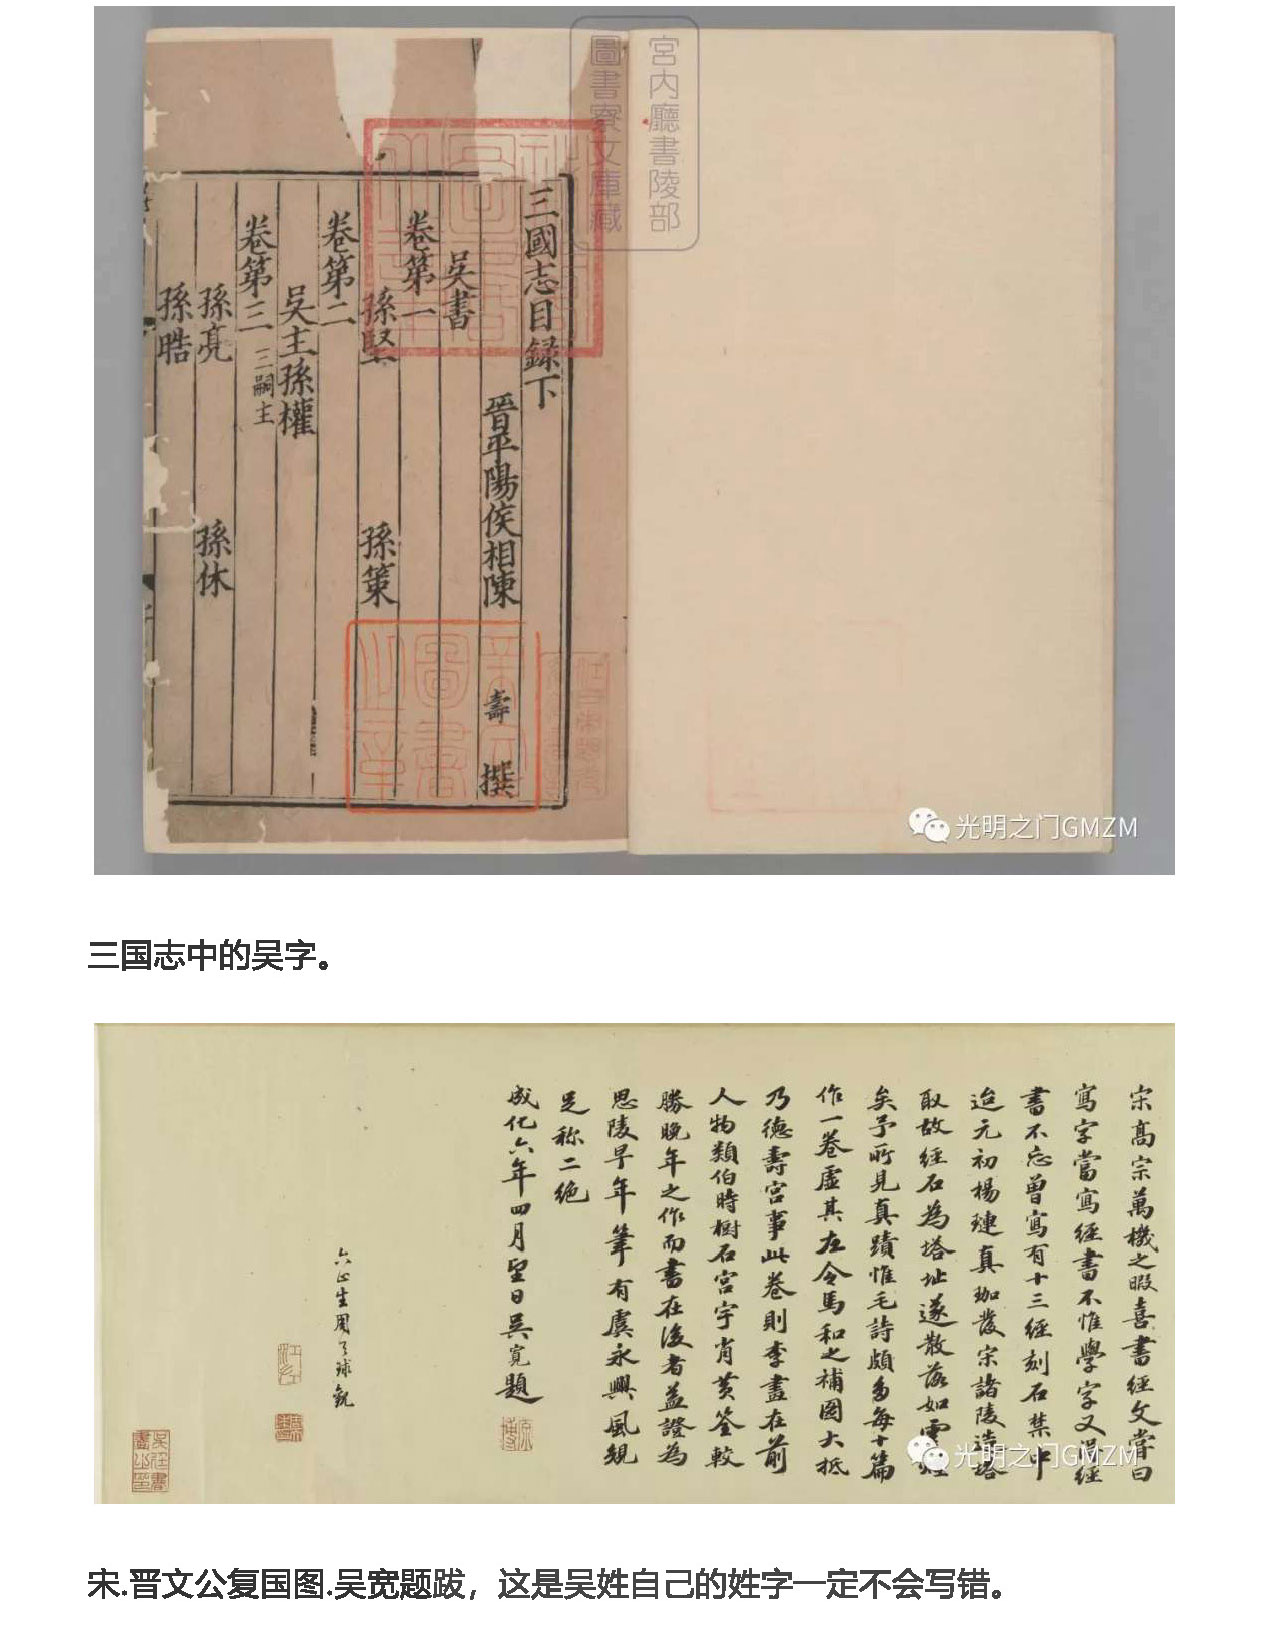 宮内廳書陵部
圖書寮文庫藏
三國志目録下
晉平陽侯相陳壽撰
吴書
卷第一
孫堅 孫策
卷第二
吴主孫權
卷第三 三嗣主
孫亮 孫休
孫晧
光明之门GMZM
三国志中的吴字。
宋髙宗萬機之暇喜書經文甞曰
寫字當寫經書不惟學字又得經
書不忘曽寫有十三經刻石禁中
迨元初楊璉真珈發宋諸陵造塔
取故經石為塔址遂散落如雲煙
矣予所見真蹟惟毛詩頗多每十篇
作一卷虚其左令馬和之補圖大抵
乃徳壽宫事此卷則李畫在前
人物類伯時樹石宫宇肖黄筌較
勝晚年之作而書在後者益證為
思陵早年筆有虞永興風規
足称二绝
成化六年四月望日吴寛題
六止生周了球觀
光明之门GMZM
宋.晋文公复国图.吴宽题跋，这是吴姓自己的姓字一定不会写错。